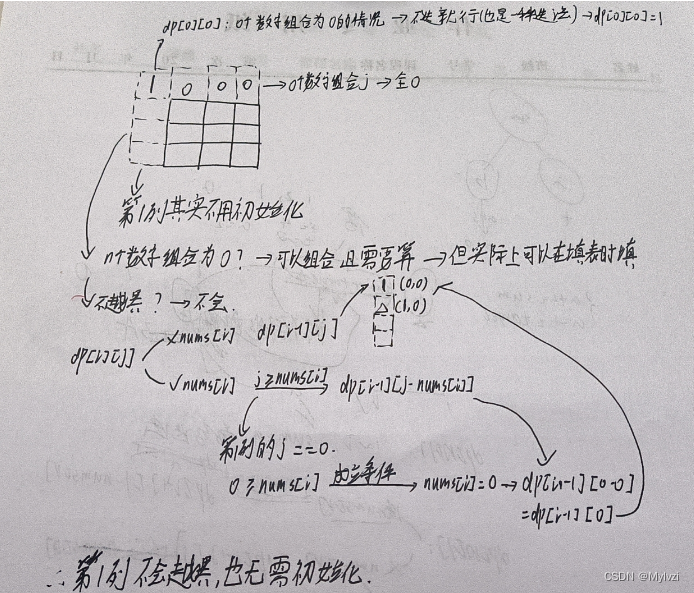 dp[0][0]: 0个数字组合为0的情况 → 不选就行(也是一种选法) → dp[0][0]=1
1 0 0 0 → 0个数字组合j → 全0
第1列其实不用初始化
n个数字组合为0? → 可以组合且需要算 → 但实际上可以在填表时填
不越界? → 不会.
1 (0,0)
△ (1,0)
dp[i][j]
×nums[i] dp[i-1][j]
√nums[i] j≥nums[i] dp[i-1][j-nums[i]]
第1列的j==0.
0≥nums[i] 成立条件 → nums[i]=0 → dp[i-1][0-0]
=dp[i-1][0]
∴第1列不会越界,也无需初始化.
CSDN @Mylvzi